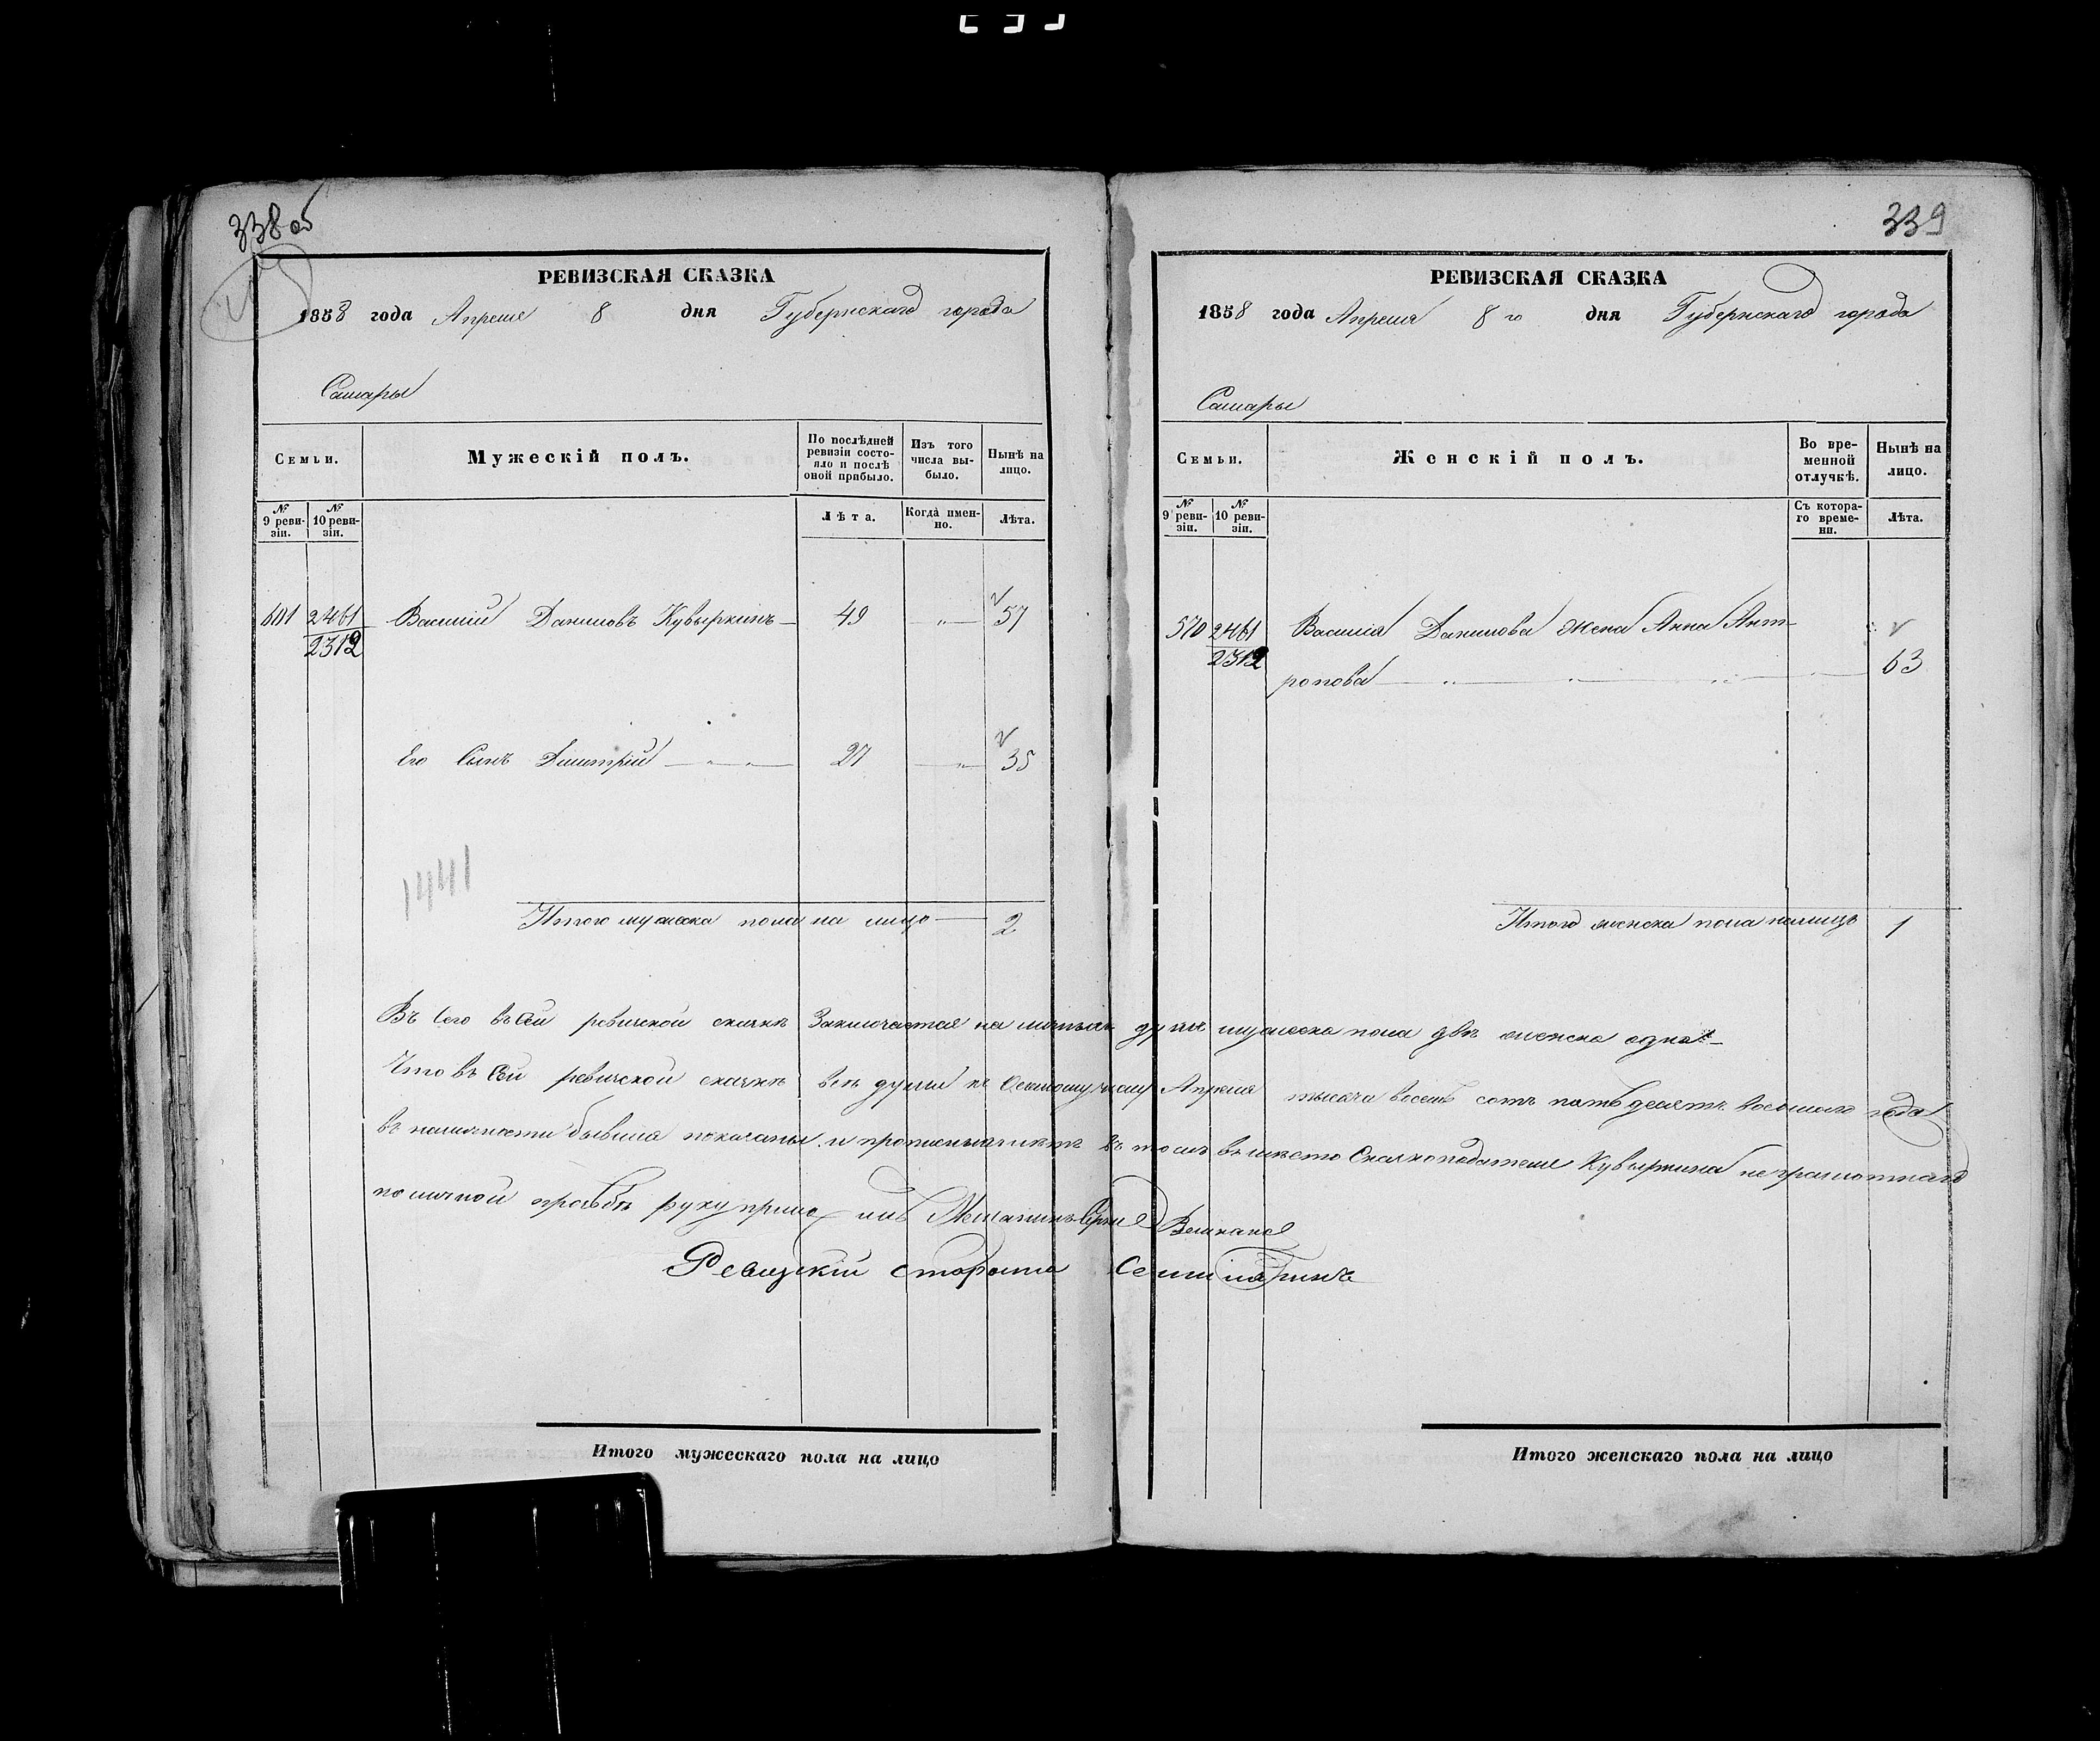 338 об
РЕВИЗСКАЯ СКАЗКА
1858 года Апреля 8 дня Губернскаго города
Самары
Семьи.
Мужескій полъ.
По послѣдней ревизіи состояло и послѣ оной прибыло.
Изъ того числа выбыло.
Нынѣ на лицо.
№ 9 ревизіи.
№ 10 ревизіи.
Лѣта.
Когда имен-но.
Лѣта.
601 2461 Василий Даниловъ Кувыркинъ 49 " 57
2312
Его Сынъ Димитрій 27 " 35
1441
Итого мужеска пола на лицо 2
339
РЕВИЗСКАЯ СКАЗКА
1858 года Апреля 8 го дня Губернскаго города
Самары
Семьи.
Женскій полъ.
Во временной отлучкѣ.
Нынѣ на лицо.
№ 9 ревизіи.
№ 10 ревизіи.
Съ котораго времени.
Лѣта.
570 2461 Василія Данилова жена Анна Ант-
2312 ропова 63
Итого женска пола налицо 1
Въ сего въ сей ревиской скаске Заключается на лицо душъ мужеска пола двѣ женска одна
Что въ сей ревиской скаскѣ всѣ души къ Осьмому числу Апреля тысяча восемь сотъ пятьдесятъ восьмого года
въ наличности бывшия показаны и прописныхъ нѣтъ въ томъ вместо Сказкоподателя Кувыркина неграмотнаго
по личной прозьбѣ руку приложилъ Мещанинъ
Ревизкій староста
Итого мужескаго пола на лицо
Итого женскаго пола на лицо